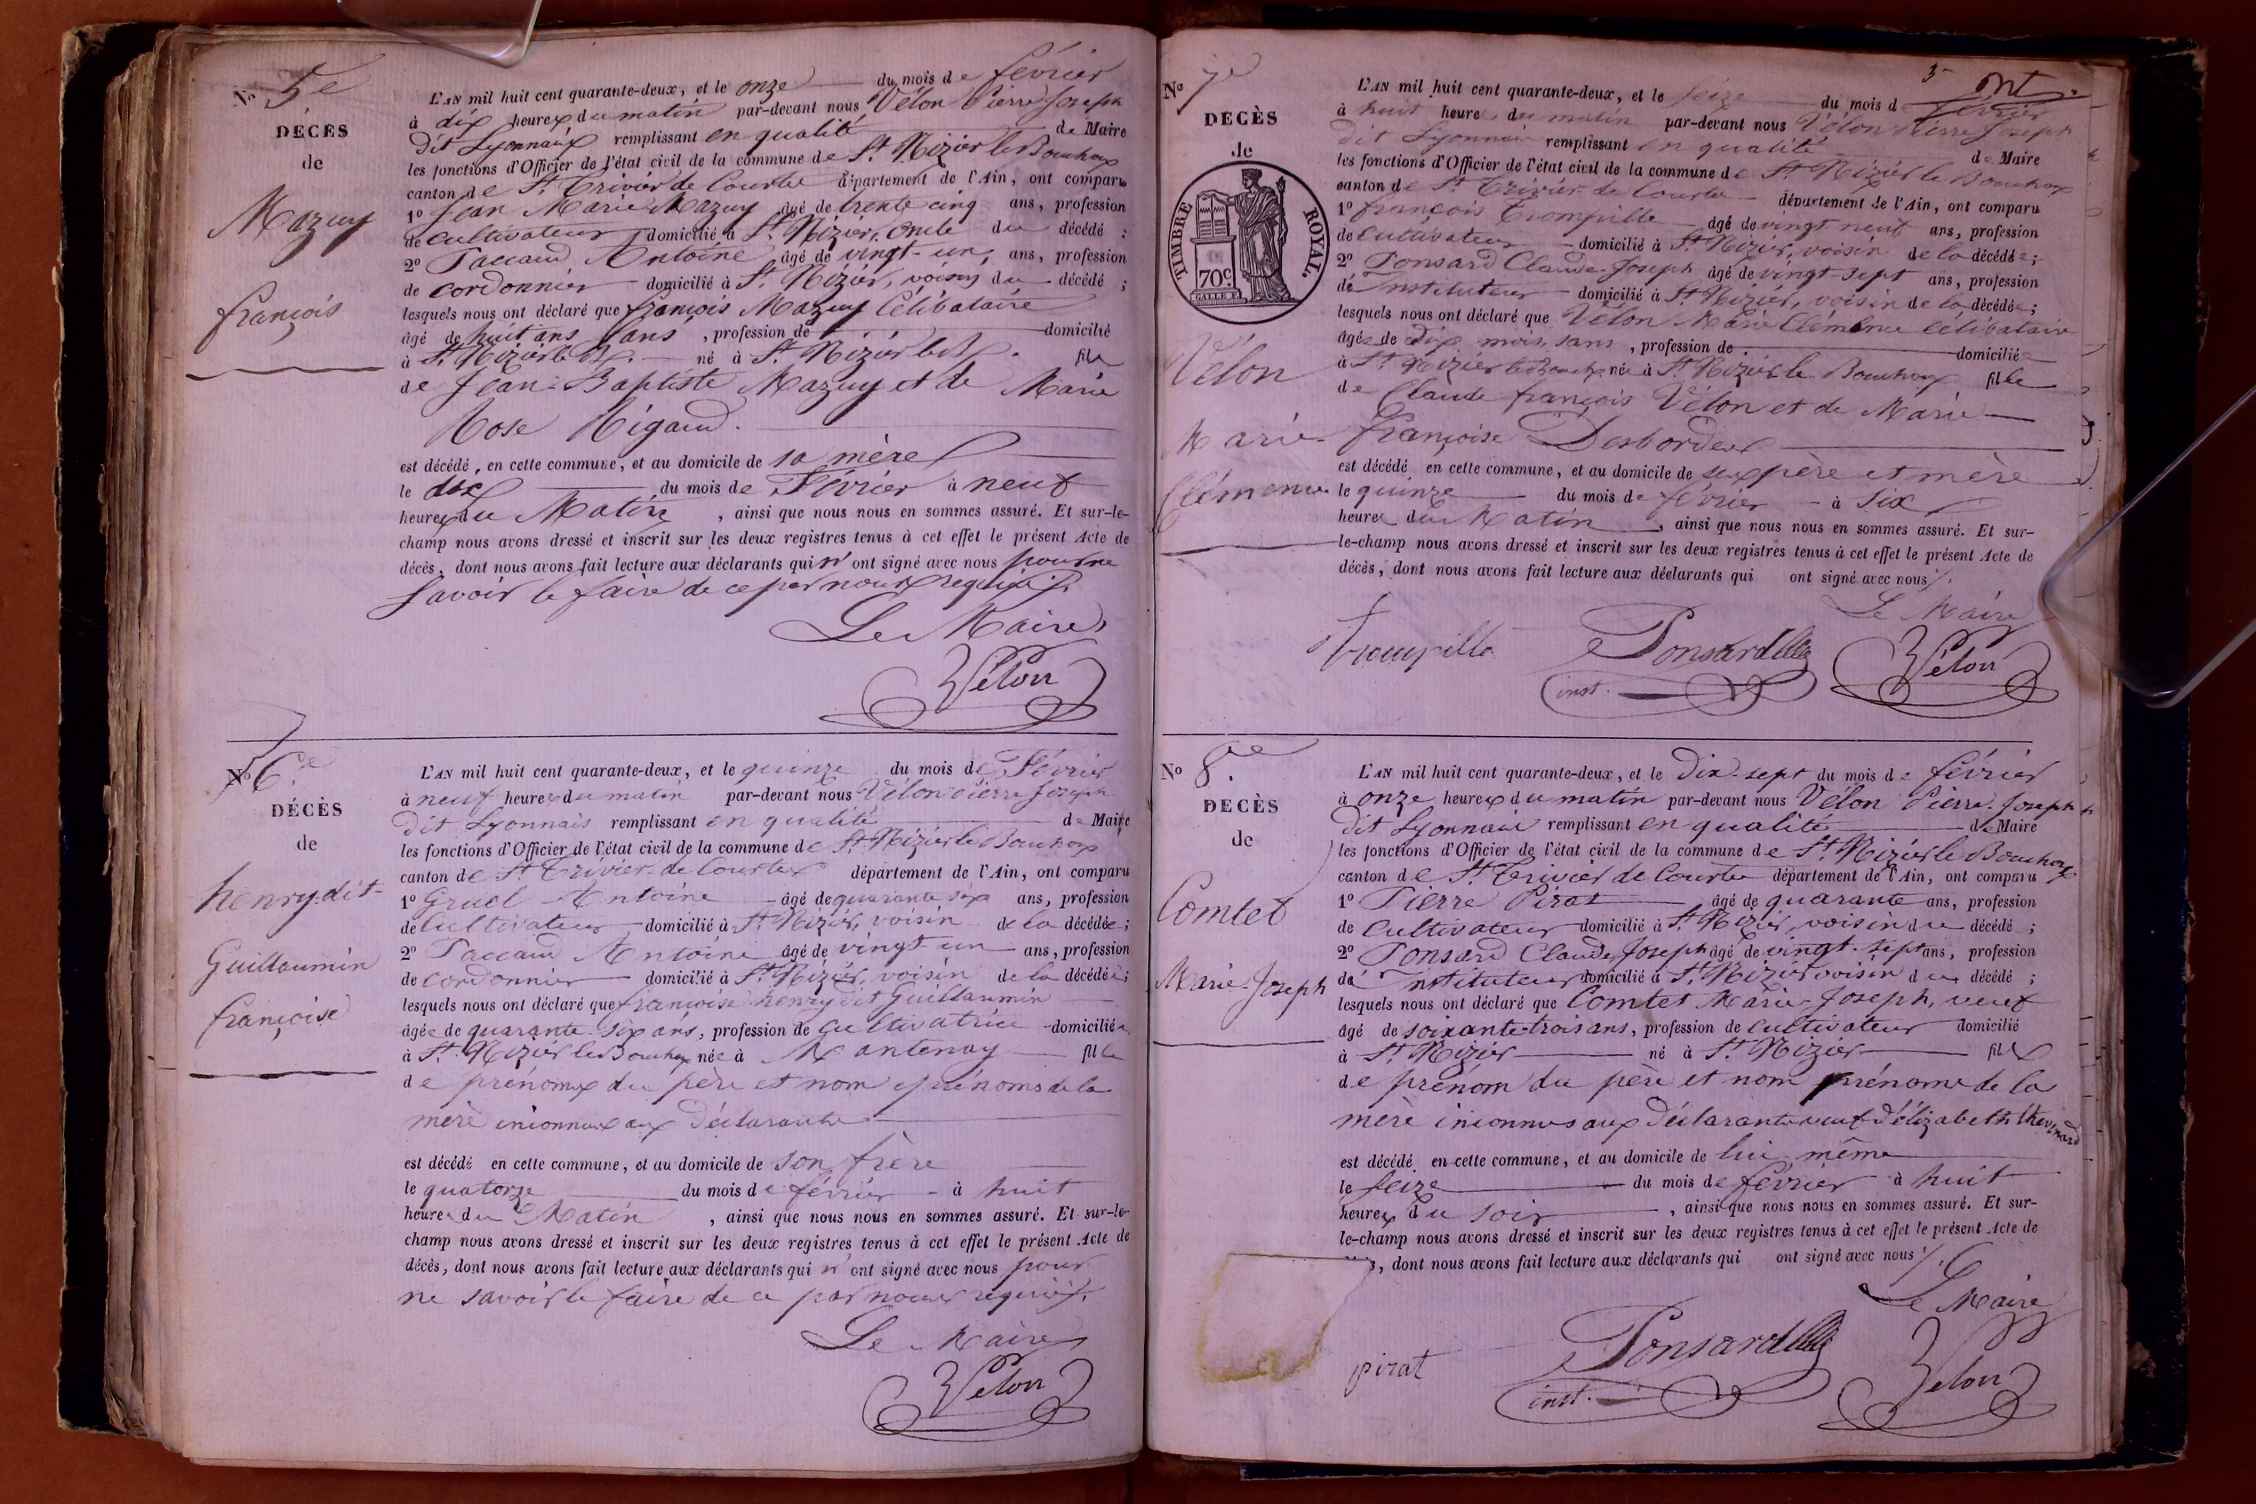 No 5e
DÉCÈS
de
Mazuy
françois
L'AN mil huit cent quarante-deux, et le onze du mois de février
à dix heures du matin par-devant nous Vélon Pierre Joseph
dit Lyonnais remplissant en qualité de Maire
les fonctions d'Officier de l'état civil de la commune de St. Nizier le Bouchoux
canton de St. Trivier de Courtes département de l'Ain, ont comparu
1o Jean Marie Mazuy âgé de trente cinq ans, profession
de cultivateur domicilié à St. Nizier, oncle du décédé ;
2o Paccaud Antoine âgé de vingt-un, ans, profession
de cordonnier domicilié à St. Nizier, voisin du décédé ;
lesquels nous ont déclaré que françois Mazuy Célibataire
âgé de huit ans sans , profession de domicilié
à St. Nizier le Bx. né à St. Nizier le Bx. fils
de Jean-Baptiste Mazuy et de Marie
Rose Rigaud.
est décédé, en cette commune, et au domicile de sa mère
le dix du mois de Février à neuf
heures du Matin , ainsi que nous nous en sommes assuré. Et sur-le-
champ nous avons dressé et inscrit sur les deux registres tenus à cet effet le présent Acte de
décès, dont nous avons fait lecture aux déclarants qui n'ont signé avec nous pour ne
savoir le faire de ce par nous requis.
Le Maire
Vélon
No 6.e
DÉCÈS
de
henry dit
Guillaumin
françoise
L'AN mil huit cent quarante-deux, et le quinze du mois de Février
à neuf heures du matin par-devant nous Vélon Pierre Joseph
dit Lyonnais remplissant en qualité de Maire
les fonctions d'Officier de l'état civil de la commune de St. Nizier le Bouchoux
canton de St. Trivier de Courtes département de l'Ain, ont comparu
1o Gruel Antoine âgé de quarante six ans, profession
de Cultivateur domicilié à St. Nizier, voisin de la décédée ;
2o Paccaud Antoine âgé de vingt-un ans, profession
de cordonnier domicilié à St. Nizier, voisin de la décédée ;
lesquels nous ont déclaré que françoise henry dit Guillaumin
âgée de quarante-six ans, profession de cultivatrice domiciliée
à St. Nizier le Bouchoux née à Mantenay fille
de prénoms du père et nom prénoms de la
mère inconnus aux Déclarants
est décédé en cette commune, et au domicile de son frère
le quatorze du mois de février à huit
heures du Matin , ainsi que nous nous en sommes assuré. Et sur-le-
champ nous avons dressé et inscrit sur les deux registres tenus à cet effet le présent Acte de
décès, dont nous avons fait lecture aux déclarants qui n'ont signé avec nous pour
ne savoir le faire de ce par nous requis.
Le Maire
Vélon
3
No 7e
DÉCÈS
de
TIMBRE ROYAL.
70c.
Vélon
Marie
Clémence
L'AN mil huit cent quarante-deux, et le seize du mois de février
à huit heures du matin par-devant nous Vélon Pierre Joseph
dit Lyonnais remplissant en qualité de Maire
les fonctions d'Officier de l'état civil de la commune de St. Nizier le Bouchoux
canton de St. Trivier de Courtes département de l'Ain, ont comparu
1o françois Trompille âgé de vingt neuf ans, profession
de cultivateur domicilié à St. Nizier, voisin de la décédée ;
2o Ponsard Claude-Joseph âgé de vingt-sept ans, profession
de Instituteur domicilié à St. Nizier, voisin de la décédée ;
lesquels nous ont déclaré que Vélon Marie Clémence célibataire
âgée de dix mois, sans , profession de domiciliée
à St. Nizier le Bouchx née à St. Nizier le Bouchoux fille
de Claude françois Vélon et de Marie
françoise Desbordes
est décédé en cette commune, et au domicile de ses père et mère
le quinze du mois de février à six
heures du Matin , ainsi que nous nous en sommes assuré. Et sur-
le-champ nous avons dressé et inscrit sur les deux registres tenus à cet effet le présent Acte de
décès, dont nous avons fait lecture aux déclarants qui ont signé avec nous
Le Maire
Trompille Ponsard Vélon
inst.
No 8.e
DÉCÈS
de
Comtet
Marie-Joseph
L'AN mil huit cent quarante-deux, et le Dix-sept du mois de février
à onze heures du matin par-devant nous Vélon Pierre-Joseph
dit Lyonnais remplissant en qualité de Maire
les fonctions d'Officier de l'état civil de la commune de St. Nizier le Bouchoux
canton de St. Trivier de Courtes département de l'Ain, ont comparu
1o Pierre Pirat âgé de quarante ans, profession
de cultivateur domicilié à St. Nizier, voisin du décédé ;
2o Ponsard Claude Joseph âgé de vingt-sept ans, profession
de Instituteur domicilié à St. Nizier voisin du décédé ;
lesquels nous ont déclaré que Comtet Marie-Joseph, veuf
âgé de soixante-trois ans, profession de cultivateur domicilié
à St. Nizier né à St. Nizier fils
de prénom du père et nom prénoms de la
mère inconnus aux Déclarants veuf d'élizabeth thevenard
est décédé en cette commune, et au domicile de lui même
le seize du mois de février à huit
heures du soir , ainsi que nous nous en sommes assuré. Et sur-
le-champ nous avons dressé et inscrit sur les deux registres tenus à cet effet le présent Acte de
, dont nous avons fait lecture aux déclarants qui ont signé avec nous
Le Maire
pirat Ponsard Vélon
inst.